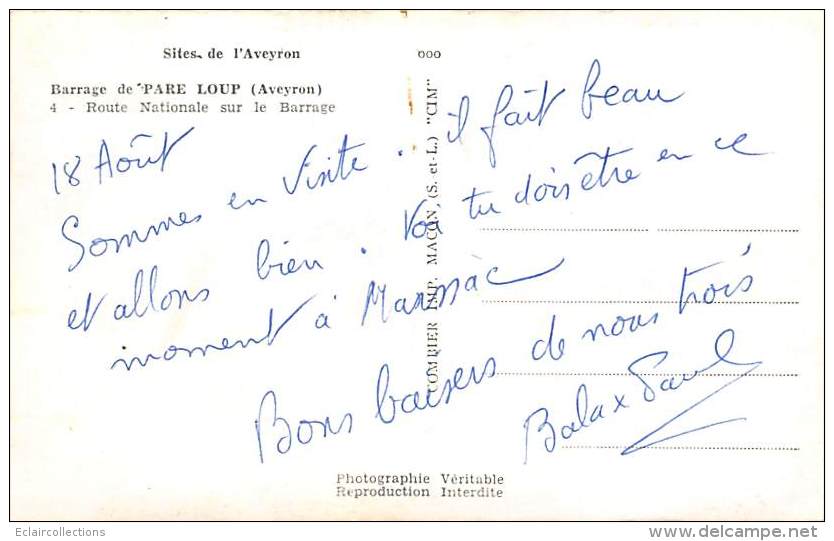 Sites de l'Aveyron
ooo
Barrage de PARE LOUP (Aveyron)
4 - Route Nationale sur le Barrage
COMBIER IMP. MACON (S.-et-L.) "CIM"
18 Août
Sommes en Visite. il fait beau
et allons bien. tu dois être en ce
moment à Marssac
Bons baisers de nous trois
Balax Paul
Photographie Véritable
Reproduction Interdite
Eclaircollections
www.delcampe.net